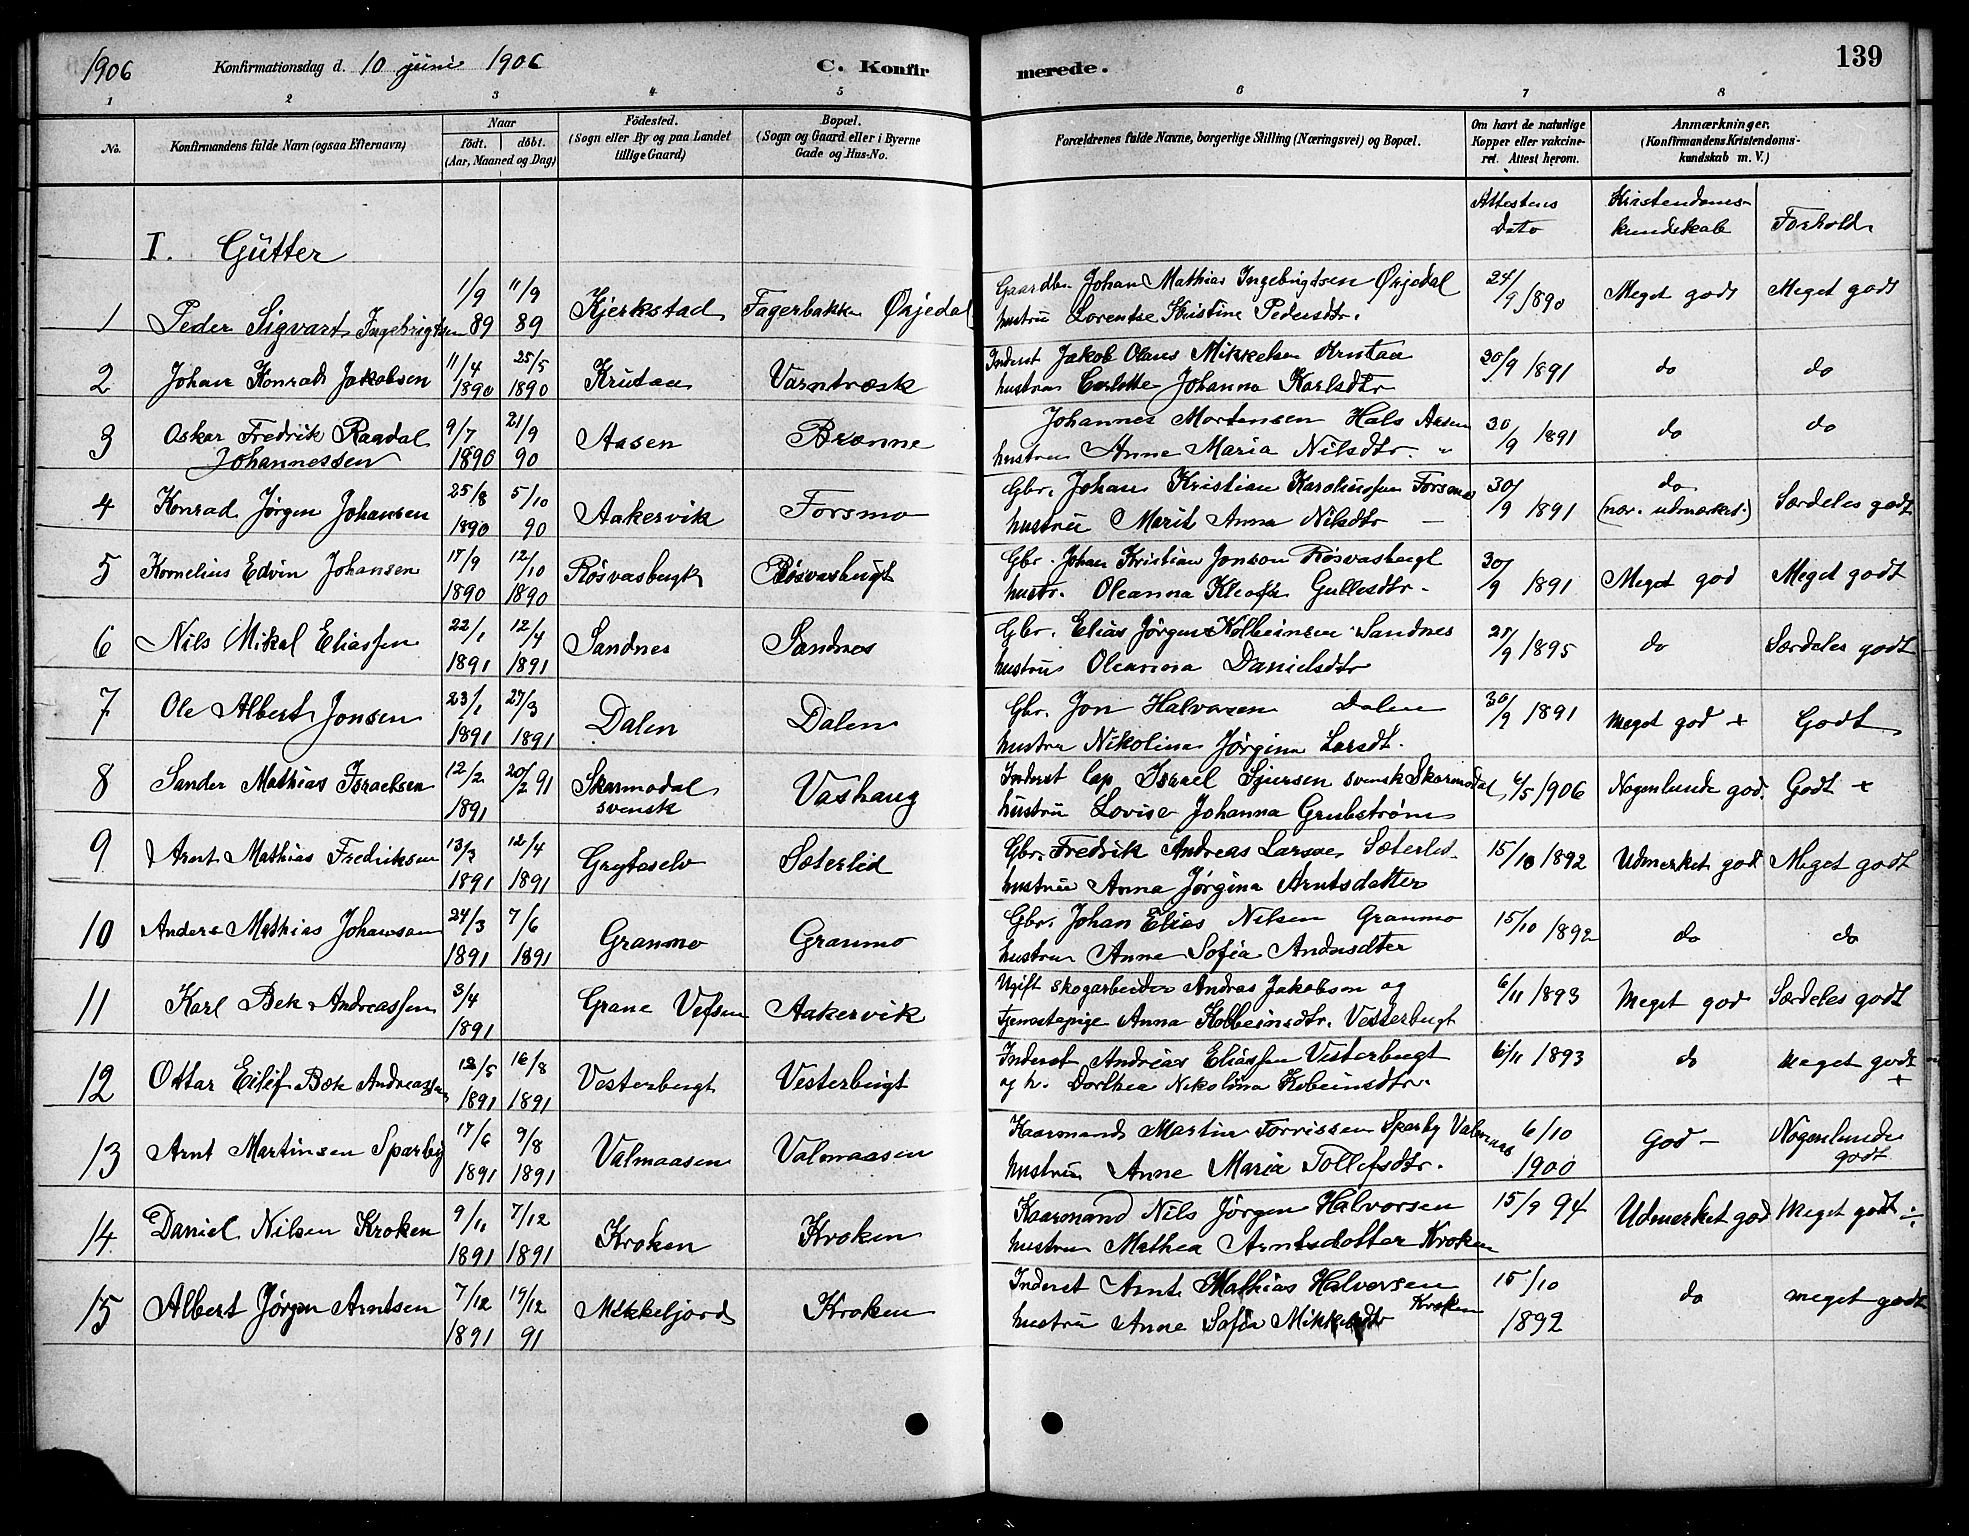 1906 Konfirmationsdag d. 10 juni 1906 C. Konfirmerede. 139
1 2 3 4 5 6 7 8
No. Konfirmandens fulde Navn (ogsaa Efternavn) Naar födt. döbt. (Aar, Maaned og Dag) Födested. (Sogn eller By og paa Landet tillige Gaard) Bopæl. (Sogn og Gaard eller i Byerne Gade og Hus-No. Forældrenes fulde Navne, borgerlige Stilling (Næringsvei) og Bopæl. Om havt de naturlige Kopper eller vakcineret. Attest herom. Anmærkninger. (Konfirmandens Kristendomskundskab m. V.)
Attestens Dato Kristendomskundskab Forhold
I. Gütter
1 Peder Sigvart Ingebrigtsen 1/9 89 11/9 89 Kjerkstad Fagerbakke Ørjedal Gaardbr. Johan Mathias Ingebrigtsen Ørjedal 24/9 1890 Meget godt Meget godt
hustru Lorentse Kristine Pedersdtr.
2 Johan Konrad Jakobsen 11/4 1890 25/5 1890 Krutaa Varntræsk Inderst Jakob Olaus Mikkelsen Krutaa 30/9 1891 do do
hustru Carlotte Johanna Karlsdtr
3 Oskar Fredrik Raadal Johannessen 9/7 1890 21/9 90 Aasen Brænne Johannes Mortensen Hals Aasen 30/9 1891 do do
hustru Anne Maria Nilsdtr. "
4 Konrad Jørgen Johansen 25/8 1890 5/10 90 Aakervik Forsmo Gbr. Johan Kristian Karoliussen Forsmo 30/9 1891 do (nær. udmærket.) Særdeles godt
hustru Marit Anna Nilsdtr —
5 Kornelius Edvin Johansen 17/9 1890 12/10 1890 Røsvasbugt Røsvasbugt Gbr. Johan Kristian Jonson Røsvasbugt 30/9 1891 Meget god Meget godt
hustr. Oleanna Kleofa Gullesdtr.
6 Nils Mikal Eliassen 22/1 1891 12/4 1891 Sandnes Sandnes Gbr. Elias Jørgen Kolbeinsen Sandnes 21/9 1895 do Særdeles godt
hustru Oleanna Danielsdtr
7 Ole Albert Jonsen 23/1 1891 27/3 1891 Dalen Dalen Gbr. Jon Halvorsen Dalen 30/9 1891 Meget god + Godt
hustru Nikolina Jørgina Larsdt.
8 Sander Mathias Israelsen 12/2 1891 20/2 91 Skarmodal svensk Vashaug Inderst lap Israel Sjursen svensk Skarmodal, 6/5 1906 Nogenlunde god. Godt +
hustru Lovise Johanna Grubstrøm
9 Arnt Mathias Fredriksen 13/3 1891 12/4 1891 Grytaselv Sæterlid Gbr. Fredrik Andreas Larsen Sæterlid 15/10 1892 Udmerket god Meget godt
hustru Anna Jørgina Arntsdatter
10 Anders Mathias Johansen 24/3 1891 7/6 1891 Granmo Granmo Gbr. Johan Elias Nilsen Granmo 15/10 1892 do do
hustru Anne Sofia Andersdtter
11 Karl Bek Andreassen 3/4 1891 Grane Vefsen Aakervik Ugift skogarbeider Andras Jakobsen og 6/11 1893 Meget god Særdeles godt
Tjenestepige Anna Kolbeinsdtr. Vesterbugt
12 Ottar Eilif Bæk Andreassen 12/5 1891 16/8 1891 Vesterbugt Vesterbugt Inderst Andreas Eliassen Vesterbugt 6/11 1893 do Meget godt +
og h. Dorthea Nikolina Kobeinsdtr.
13 Arnt Martinsen Sparby 17/6 1891 9/8 1891 Valmaasen Valmaasen Kaarmand Martin Torrissen Sparby Valmaas 6/10 1900 God - Nogenlunde godt
hustru Anne Maria Tollefsdtr.
14 Daniel Nilsen Kroken 9/11 1891 7/12 1891 Kroken Kroken Kaarmand Nils Jørgen Halvorsen 15/9 94 Udmerket god Meget godt ÷
hustru Mathea Arntsdotter Kroken
15 Albert Jørgen Arntsen 7/12 1891 19/12 91 Mikkeljord Kroken Inderst Arnt Mathias Halvorsen Kroken 15/10 1892 do meget godt
hustru Anne Sofia Mikkelsdtr